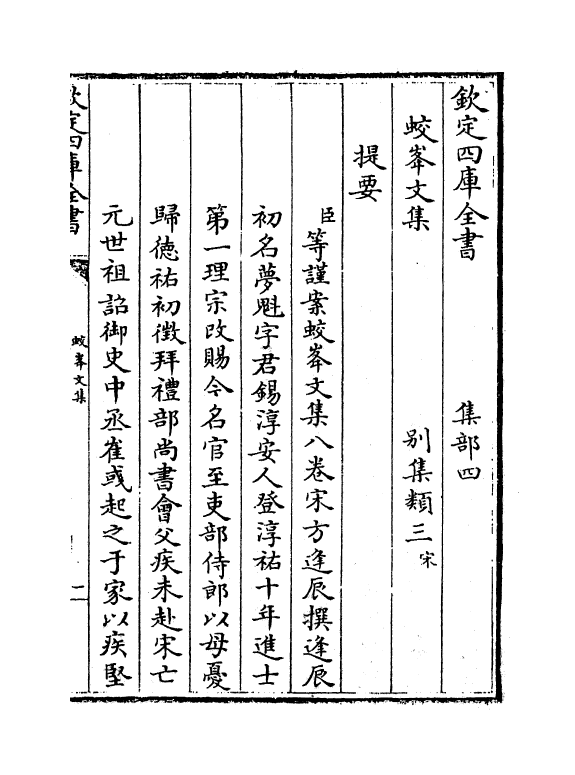 欽定四庫全書　集部四
蛟峯文集　别集類三宋
提要
臣等謹案蛟峯文集八卷宋方逢辰撰逢辰
初名夢魁字君錫淳安人登淳祐十年進士
第一理宗改賜今名官至吏部侍郎以母憂
歸德祐初徵拜禮部尚書會父疾未赴宋亡
元世祖詔御史中丞崔彧起之于家以疾堅
欽定四庫全書
蛟峯文集